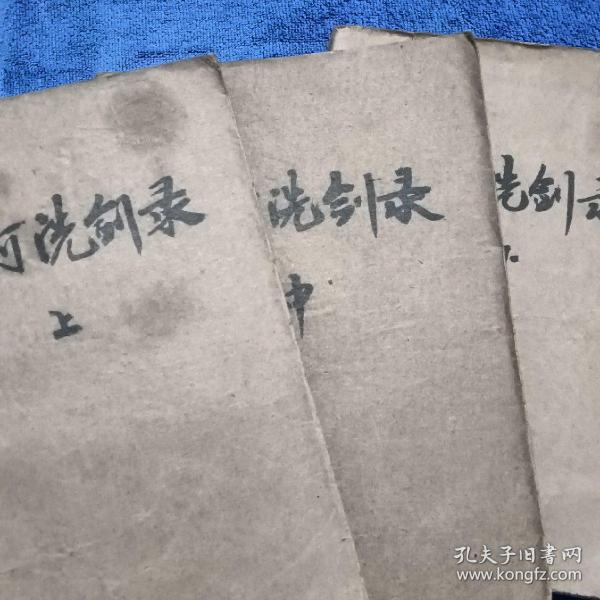 河洗剑录
上
洗剑录
中
洗剑录
孔夫子旧書网
www.kongfz.com